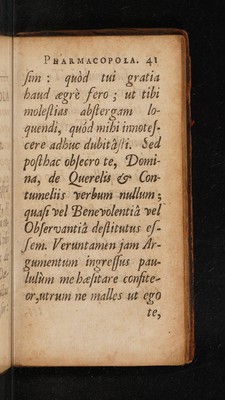 PHARMACOPOLA. 41
ſim : quòd tui gratia
haud ægrè fero ; ut tibi
moleſtias abſtergam lo-
quendi, quód mihi innoteſ-
cere adhuc dubitâſti. Sed
poſthac obſecro te, Domi-
na, de Querelis & Con-
tumeliis verbum nullum ;
quaſi vel Benevolentiâ vel
Obſervantiâ deſtitutus eſ-
ſem. Veruntamen jam Ar-
gumentum ingreſſus pau-
lulùm me hæſitare confite-
or, utrum ne malles ut ego
te,